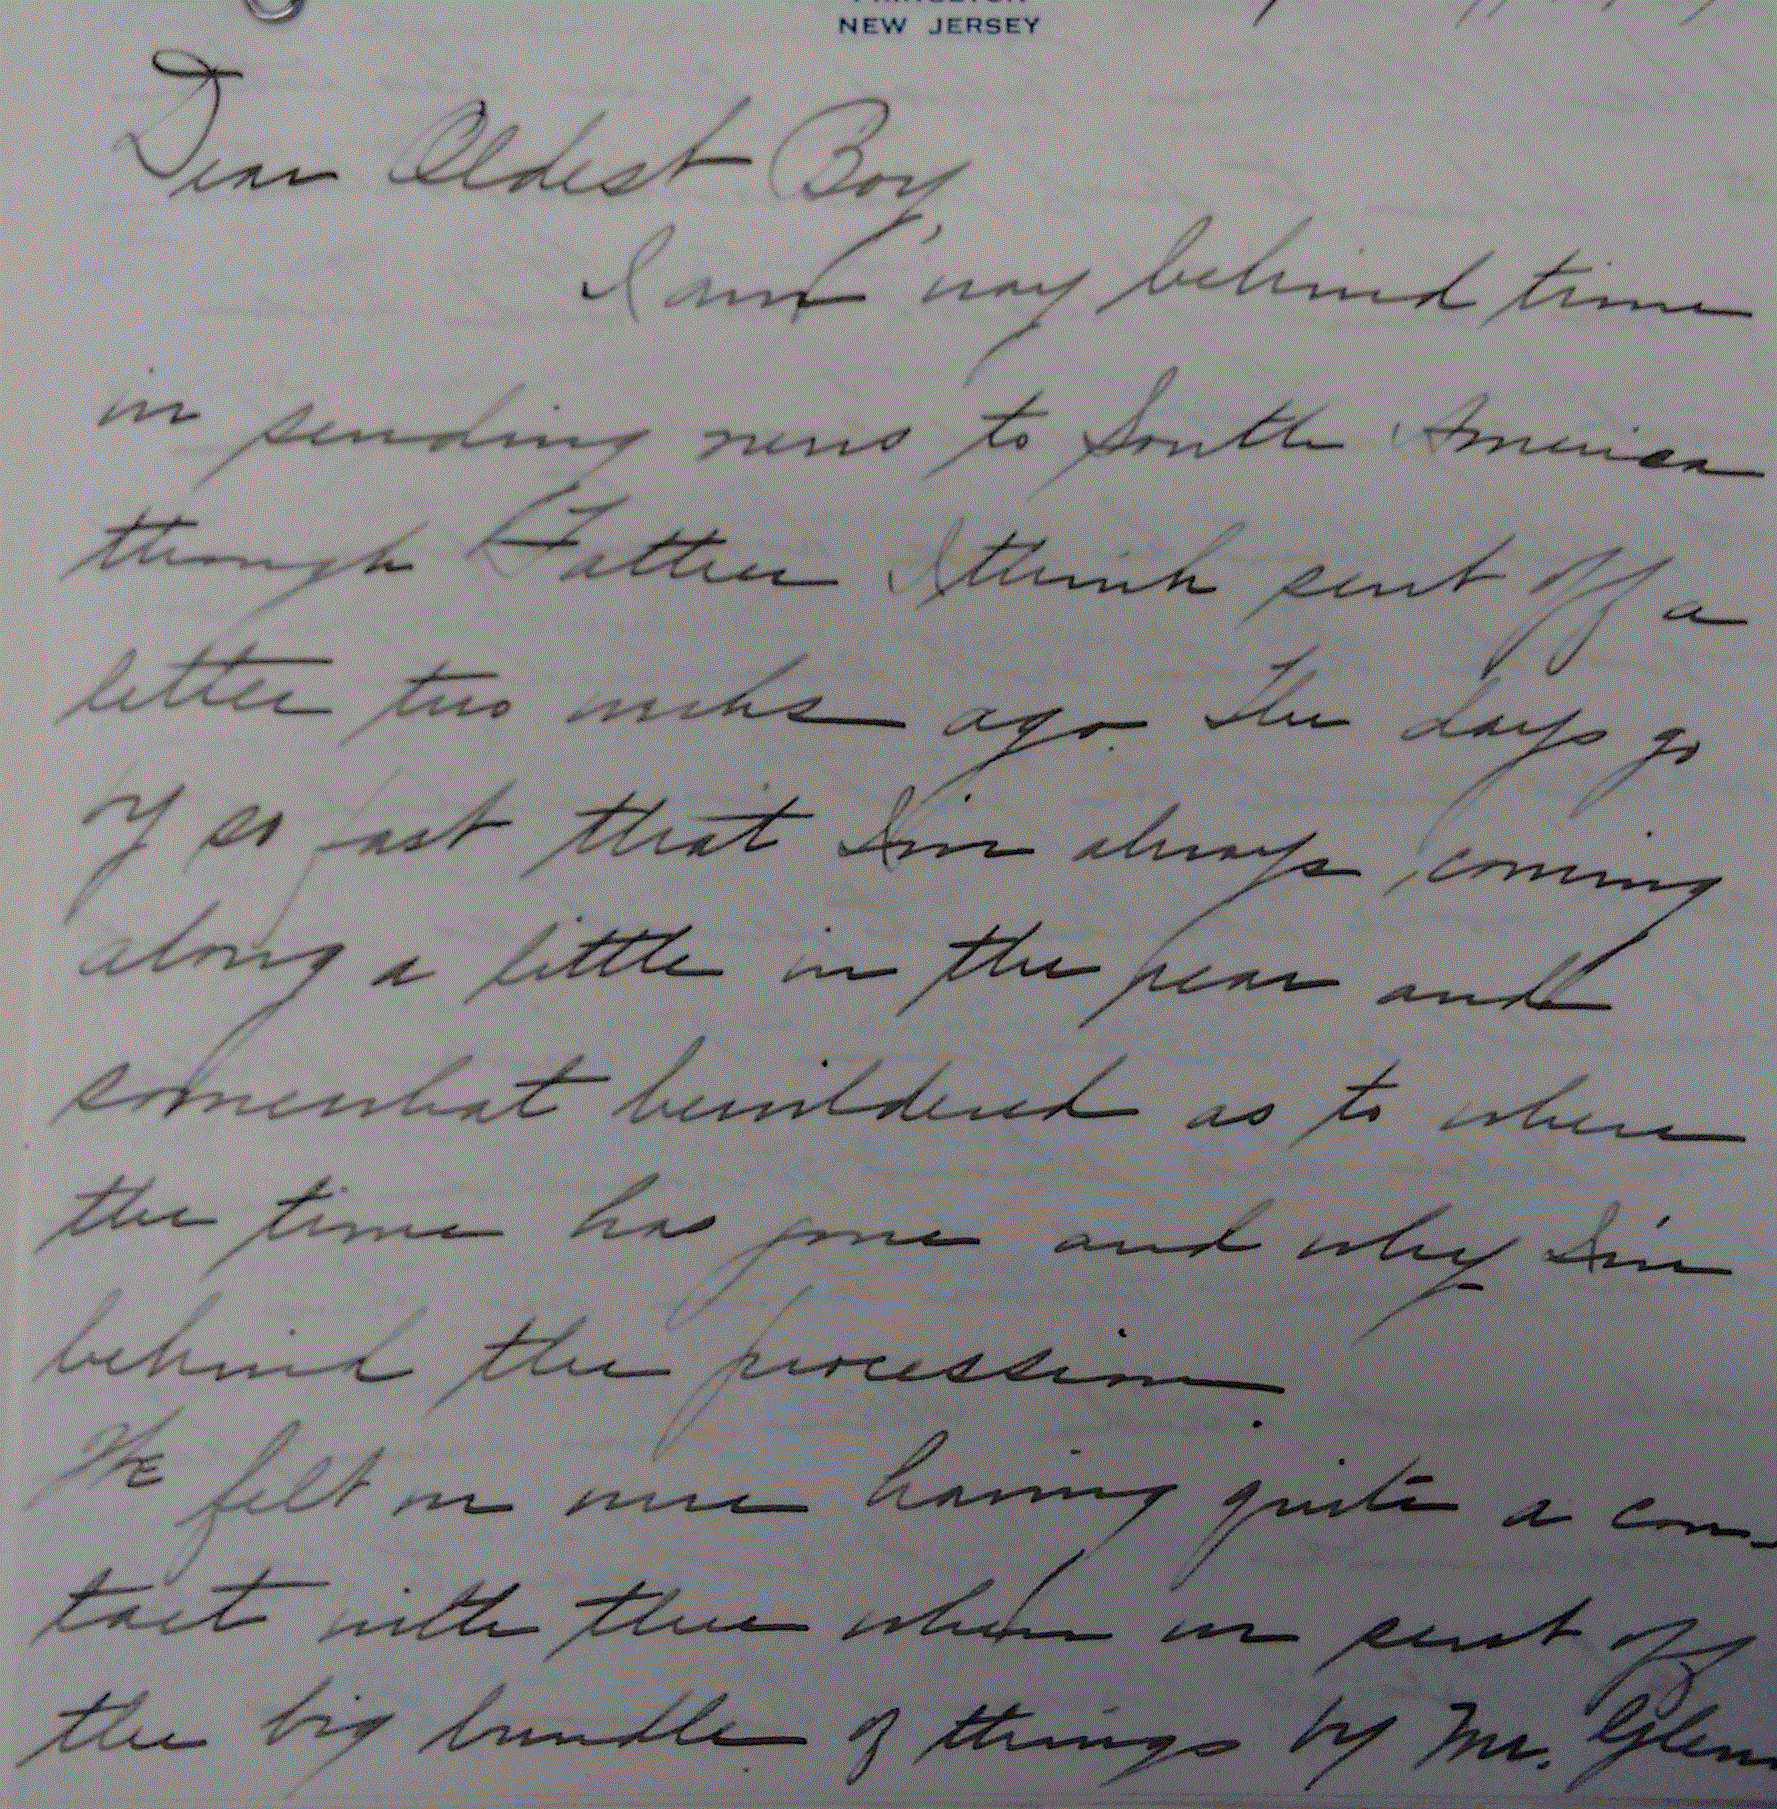 PRINCETON
NEW JERSEY
Dear Oldest Boy,
I am way behind time
in sending news to South America
though Father I think sent off a
letter two weeks ago. The days go
by so fast that I'm always coming
along a little in the rear and
somewhat bewildered as to where
the time has gone and why I'm
behind the procession.
We felt we were having quite a con-
tact with thee when we sent off
the big bundle of things by Mr. Glenn